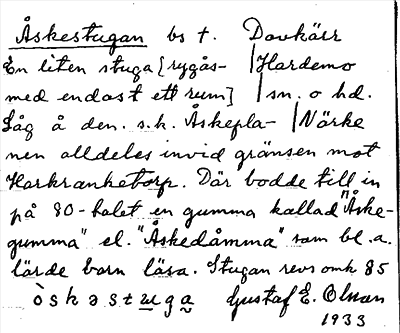 Åskestugan bs t. Dovkärr
En liten stuga [ryggås- | Hardemo
med endast ett rum] | sn. o hd.
Låg å den. s.k. Åskepla- | Närke
nen alldeles invid gränsen mot
Harkranketorp. Där bodde till in
på 80-talet en gumma kallad "Åske-
gumma" el. "Åskedåmma" som bl.a.
lärde barn läsa. Stugan revs omk 85
ò s k ə s t u g a Gustaf E. Olsson
1933